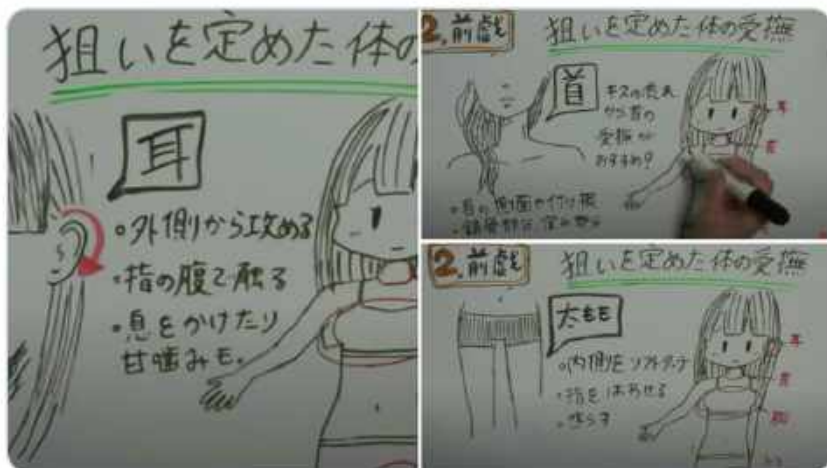 狙いを定めた体の
耳
・外側から攻める
・指の腹で触る
・息をかけたり
甘噛みも。
2.前戯
狙いを定めた体の愛撫
首
キスの流れ
から首の
愛撫が
おすすめ?
耳
首
・首の側面や付け根
2.前戯
狙いを定めた体の愛撫
太もも
・内側をソフトタッチ
・指をはわせる
・焦らす
耳
首